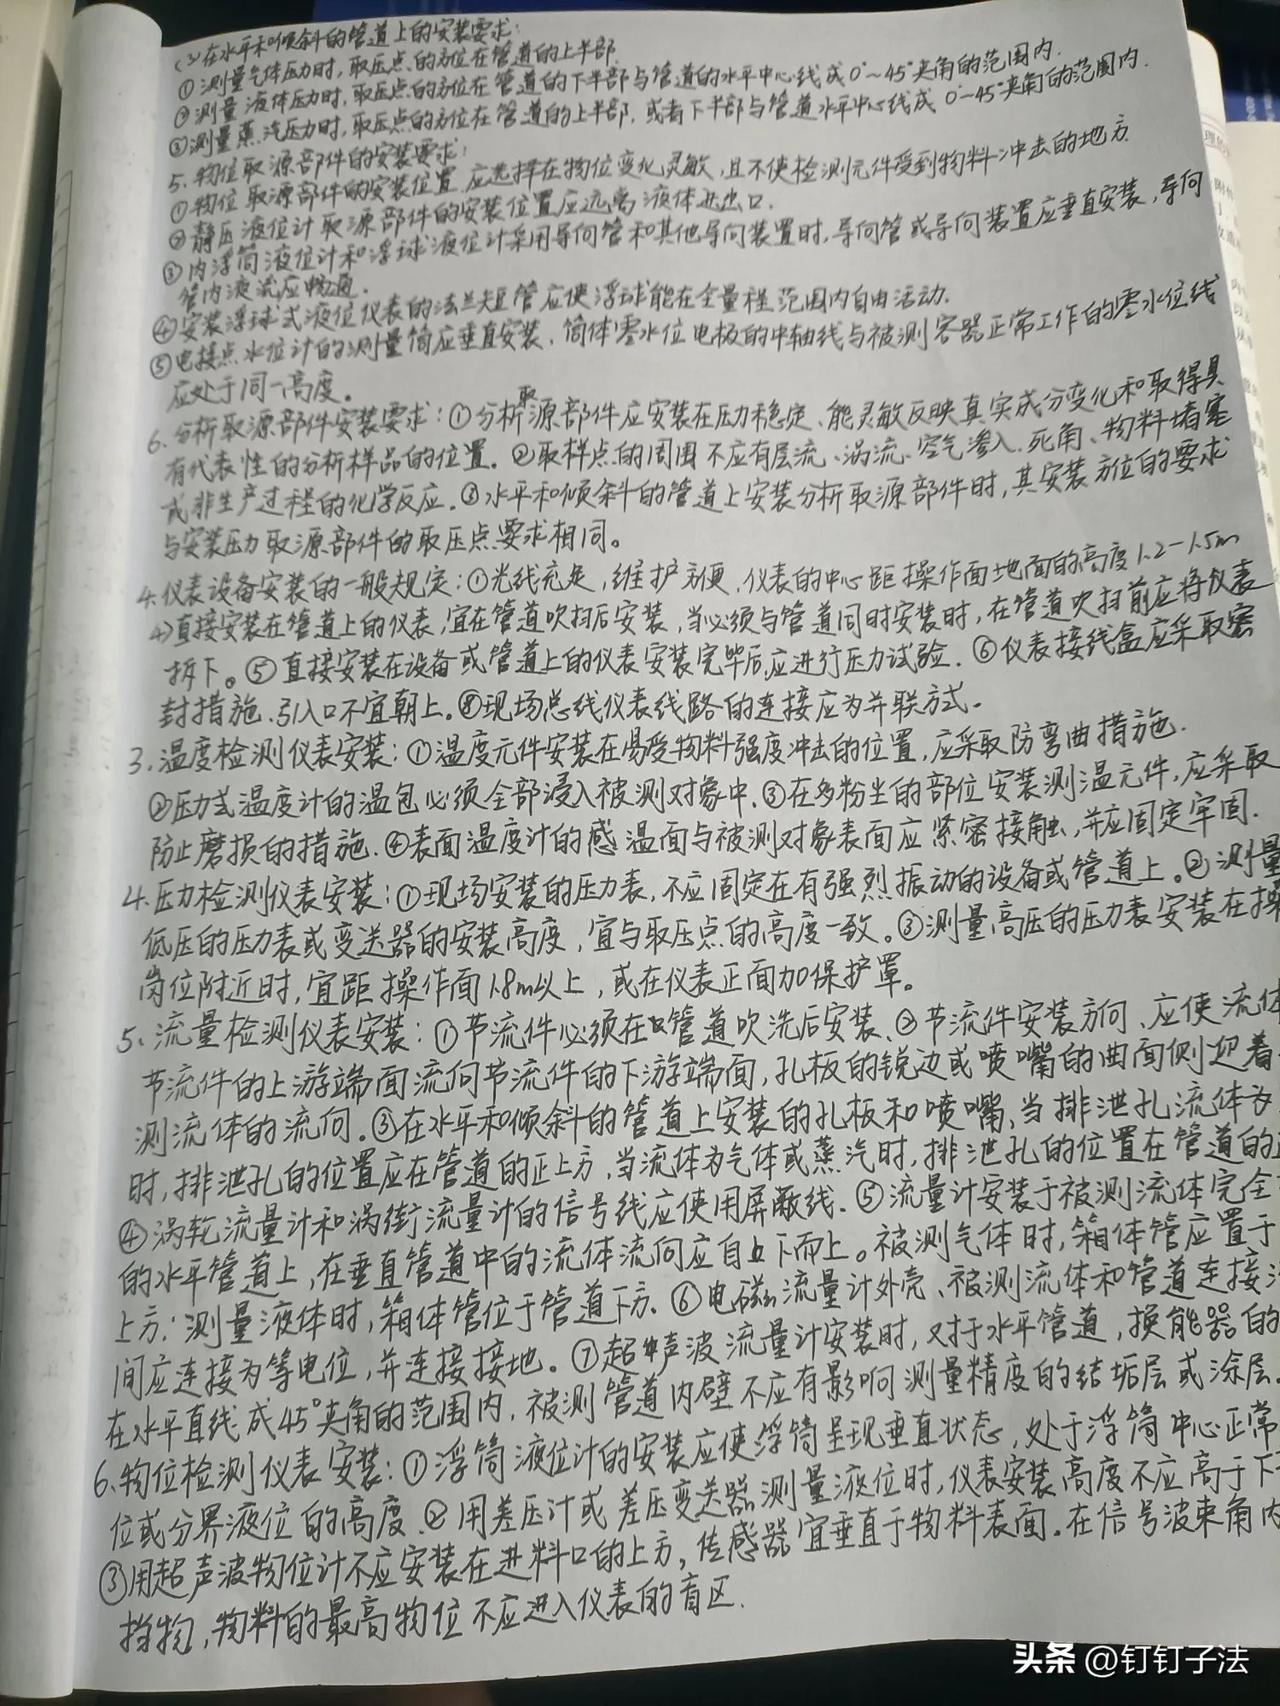 (3)在水平和倾斜的管道上的安装要求:
①测量气体压力时,取压点的方位在管道的上半部.
②测量液体压力时,取压点的方位在管道的下半部与管道的水平中心线成0°~45°夹角的范围内.
③测量蒸汽压力时,取压点的方位在管道的上半部,或者下半部与管道水平中心线成0°~45°夹角的范围内.
5.物位取源部件的安装要求:
①物位取源部件的安装位置,应选择在物位变化灵敏,且不使检测元件受到物料冲击的地方.
②静压液位计取源部件的安装位置应远离液体进出口.
③内浮筒液位计和浮球液位计采用导向管和其他导向装置时,导向管或导向装置应垂直安装,导向
管内液流应畅通.
④安装浮球式液位仪表的法兰短管应使浮球能在全量程范围内自由活动.
⑤电接点水位计的测量筒应垂直安装,筒体零水位电极的中轴线与被测容器正常工作的零水位线
应处于同一高度。
6.分析取源部件安装要求:①分析取源部件应安装在压力稳定、能灵敏反映真实成分变化和取得具
有代表性的分析样品的位置。②取样点的周围不应有层流、涡流、空气渗入、死角、物料堵塞
或非生产过程的化学反应.③水平和倾斜的管道上安装分析取源部件时,其安装方位的要求
与安装压力取源部件的取压点要求相同。
4.仪表设备安装的一般规定:①光线充足,维护方便,仪表的中心距操作面地面的高度1.2-1.5m
4>直接安装在管道上的仪表,宜在管道吹扫后安装,当必须与管道同时安装时,在管道吹扫前应将仪表
拆下。⑤直接安装在设备或管道上的仪表安装完毕后,应进行压力试验.⑥仪表接线盒应采取密
封措施、引入口不宜朝上。⑧现场总线仪表线路的连接应为并联方式.
3.温度检测仪表安装:①温度元件安装在易受物料强度冲击的位置,应采取防弯曲措施.
②压力式温度计的温包必须全部浸入被测对象中.③在多粉尘的部位安装测温元件,应采取
防止磨损的措施.④表面温度计的感温面与被测对象表面应紧密接触,并应固定牢固.
4.压力检测仪表安装:①现场安装的压力表,不应固定在有强烈振动的设备或管道上。②测量
低压的压力表或变送器的安装高度,宜与取压点的高度一致。③测量高压的压力表安装在操
岗位附近时,宜距操作面1.8m以上,或在仪表正面加保护罩。
5、流量检测仪表安装:①节流件必须在管道吹洗后安装、②节流件安装方向、应使流体
节流件的上游端面流向节流件的下游端面,孔板的锐边或喷嘴的曲面侧迎着
测流体的流向.③在水平和倾斜的管道上安装的孔板和喷嘴,当排泄孔流体为
时,排泄孔的位置应在管道的正上方,当流体为气体或蒸汽时,排泄孔的位置在管道的
④涡轮流量计和涡街流量计的信号线应使用屏蔽线.⑤流量计安装于被测流体完全
的水平管道上,在垂直管道中的流体流向应自下而上。被测气体时,箱体管应置于
上方;测量液体时,箱体管位于管道下方.⑥电磁流量计外壳、被测流体和管道连接
间应连接为等电位,并连接接地。⑦超声波流量计安装时,对于水平管道,换能器的
在水平直线成45°夹角的范围内,被测管道内壁不应有影响测量精度的结垢层或涂层.
6、物位检测仪表安装:①浮筒液位计的安装应使浮筒呈现垂直状态,处于浮筒中心正常
位或分界液位的高度.②用差压计或差压变送器测量液位时,仪表安装高度不应高于下
③用超声波物位计不应安装在进料口的上方,传感器宜垂直于物料表面.在信号波束角内
挡物,物料的最高物位不应进入仪表的盲区.
头条 @钉钉子法